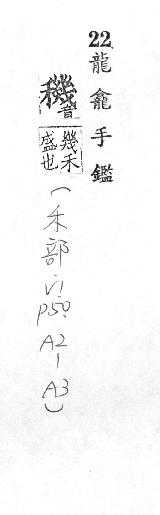 22 龍龕手鑑
穖 音幾禾盛也(禾部.VI.P50.A2-A3)